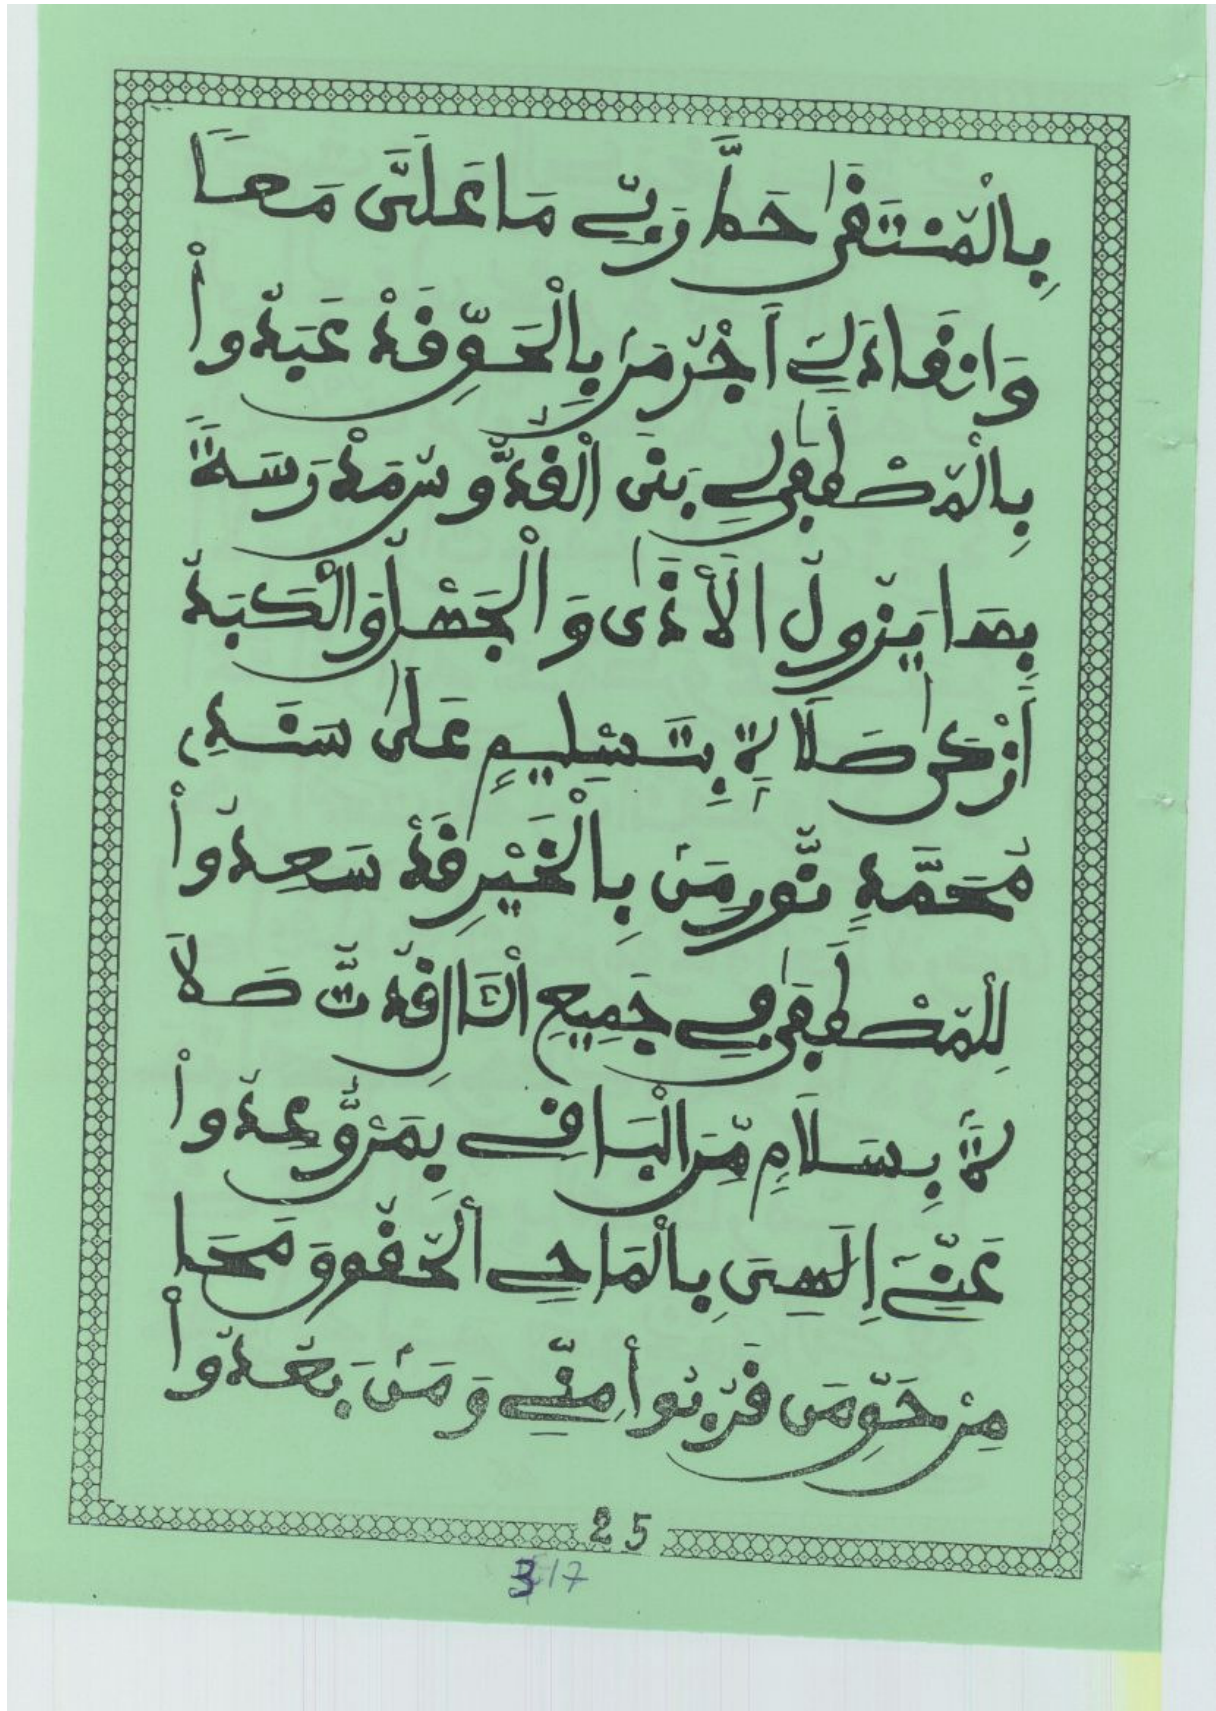 بِالْمُنْتَقَى حَطَّ رَبِّي مَا عَلَيَّ مَعَا
وَانْقَادَ لِي أَجْرُ مَنْ بِالْحَقِّ قَدْ عَبَدُواْ
بِالْمُصْطَفَى لِي بَنَى الْقُدُّوسُ مَدْرَسَةً
بِهَا يَزُولُ الْأَذَى وَالْجَهْلُ وَالْكَبَدُ
أَزْكَى صَلَاةٍ بِتَسْلِيمٍ عَلَى سَنَدِي
مُحَمَّدٍ نُورِ مَنْ بِالْخَيْرِ قَدْ سَعِدُواْ
لِلْمُصْطَفَى فِي جَمِيعِ الْآلِ قُدَّتْ صَلَا
ةٌ بِسَلَامٍ مِّنَ الْبَاقِي بِمَنْ وُّعِدُواْ
عَنِّي إِلَهِيَ بِالْمَاحِي الْحُقُوقَ مَحَا
مِنْ حَقِّ مَن قَرُبُواْ مِنِّي وَمَنْ بَعُدُواْ
25
317